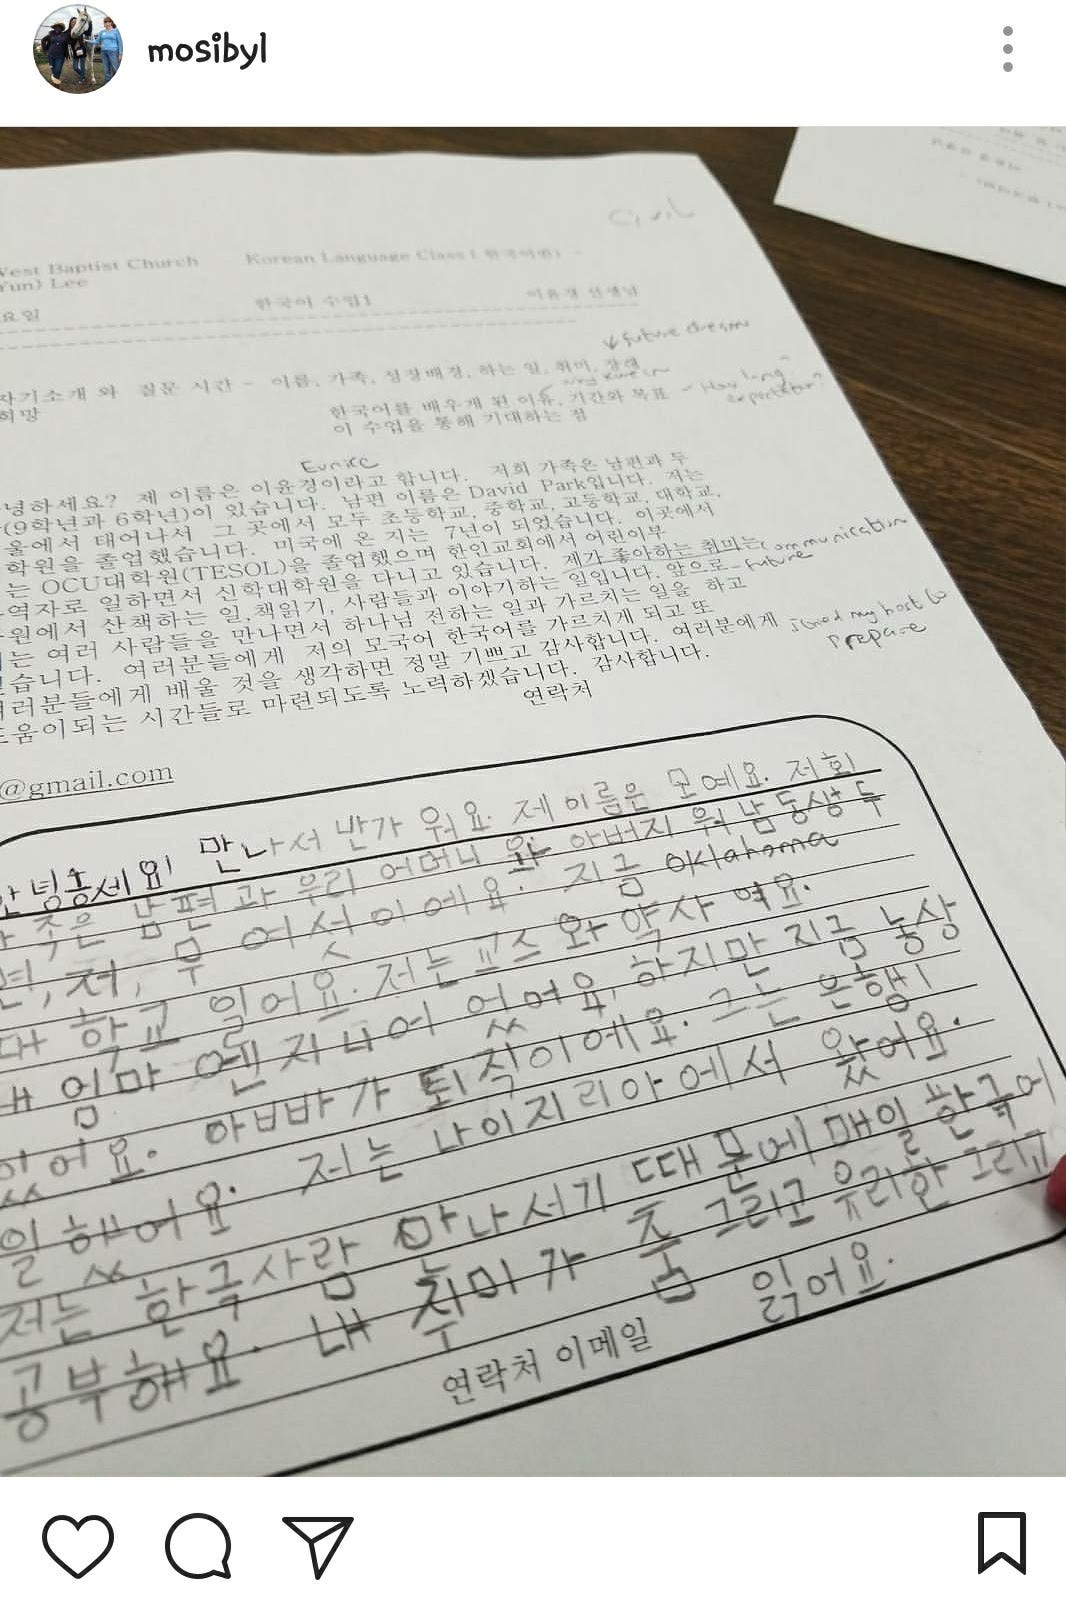 mosibyl
Civil
West Baptist Church Korean Language Class (한국어반) -
Yun) Lee
요일 한국어 수업1 이윤경 선생님
↓ future dream
자기소개 와 질문 시간 - 이름, 가족, 성장배경, 하는 일, 취미, 장래
희망 한국어를 배우게 된 이유, 기간와 목표 - How long
이 수업을 통해 기대하는 점
Eunice
녕하세요? 제 이름은 이윤경이라고 합니다. 저희 가족은 남편과 두
(9학년과 6학년)이 있습니다. 남편 이름은 David Park입니다. 저는
울에서 태어나서 그 곳에서 모두 초등학교, 중학교, 고등학교, 대학교,
학원을 졸업했습니다. 미국에 온 지는 7년이 되었습니다. 이곳에서
는 OCU대학원(TESOL)을 졸업했으며 한인교회에서 어린이부
역자로 일하면서 신학대학원을 다니고 있습니다. 제가 좋아하는 취미는 communication
원에서 산책하는 일, 책읽기, 사람들과 이야기하는 일입니다. 앞으로 - future
는 여러 사람들을 만나면서 하나님 전하는 일과 가르치는 일을 하고
습니다. 여러분들에게 저의 모국어 한국어를 가르치게 되고 또
러분들에게 배울 것을 생각하면 정말 기쁘고 감사합니다. 여러분에게 my best to
움이되는 시간들로 마련되도록 노력하겠습니다. 감사합니다. prepare
연락처
@gmail.com
안녕흥세요! 만나서 반가 워요. 제 이름은 모예요. 저희
가 족은 남편 과 우리 어머니 와 아버지 워 남동생 두
명, 저, 움 여섯이에요. 지금 oklahoma
대 학교 일어요. 저는 교스 와 약사 여요.
내 엄마 엔지니어 었여요, 하지만 지금 농상
있어요. 아빠가 퇴직이에요. 그는 은행
일 했어요. 저는 나이지리아에서 왔어요.
저는 한국사람 만나서기 때문에 매일 한국어
공부해요. 내 취미가 춤 그리고 유리한 그리고
읽어요.
연락처 이메일